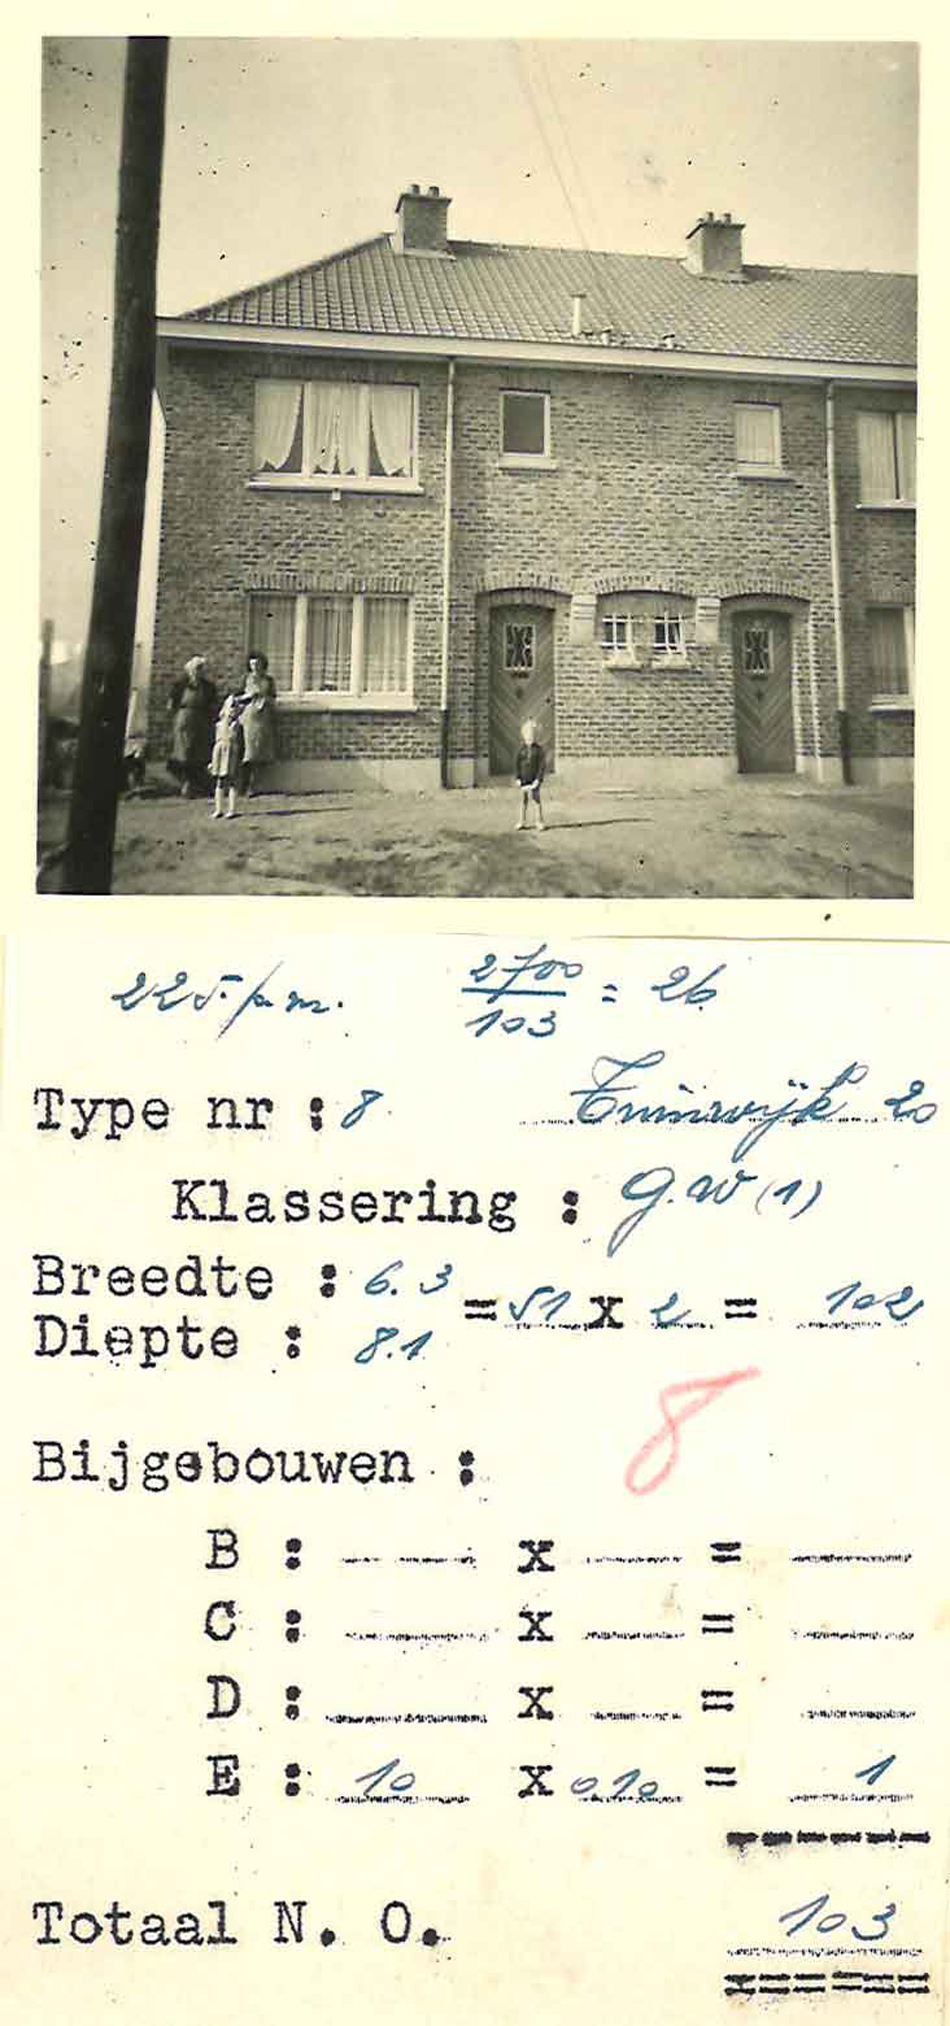 225.p.m. 2700/103 = 26
Type nr : 8. Tuinwijk 20
Klassering : G.W (1)
Breedte : 6.3
= 51 x 2 = 102
Diepte : 8.1
8
Bijgebouwen :
B : x =
C : x =
D : x =
E : 10 x 0,10 = 1
Totaal N. O. 103